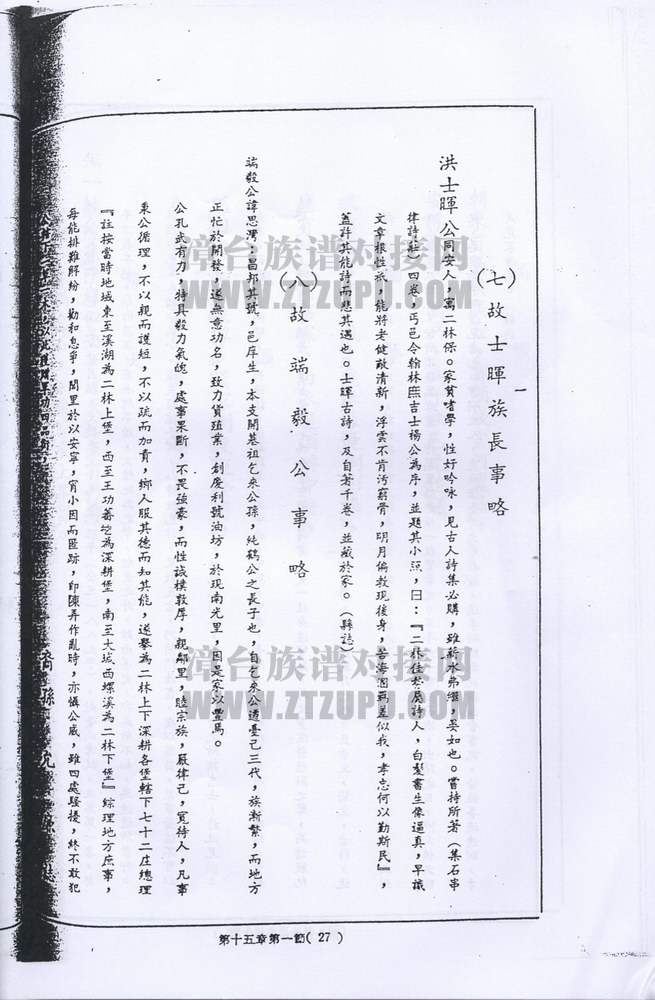 (七)故士暉族長事略
洪士暉公同安人，寓二林保。家貧嗜學，性好吟咏，見古人詩集必購，雖薪水弗繼，晏如也。嘗持所著(集石串
律詩莊)四卷，丐邑令翰林庶吉士楊公為序，並題其小照，曰：『二林住於老詩人，白髮書生像逼真，早識
文章根性祇，能將老健敵清新，浮雲不肯污窮骨，明月偏教現後身，苦海涸羈差似我，孝忘何以勤斯民』，
蓋許其能詩而悲其遇也。士暉古詩，及自著千卷，並藏於家。(縣誌)
(八)故端毅公事略
端毅公諱思灣，昌邦其號，邑庠生，本支開基祖乞來公孫，純鶴公之長子也，自乞來公遷臺已三代，族漸繁，而地方
正忙於開發，遂無意功名，致力貨殖業，創慶利號油坊，於現南光里，因是家以豐焉。
公孔武有力，特具毅力氣魄，處事果斷，不畏強豪，而性誠樸敦厚，親鄰里，睦宗族，嚴律己，寬待人，凡事
秉公循理，不以親而護短，不以疏而加責，鄉人服其德而知其能，遂舉為二林上下深耕各堡轄下七十二庄總理
『註按當時地域東至溪湖為二林上堡，西至王功蕃挖為深耕堡，南至大城西螺溪為二林下堡』綜理地方庶事，
每能排難解紛，勸和息爭，閭里於以安寧，宵小因而匿跡，即陳弄作亂時，亦懾公威，雖四處騷擾，終不敢犯
第十五章第一節(27)
漳台族谱对接网
WWW.ZTZUPU.COM
漳台族谱对接网
WWW.ZTZUPU.COM